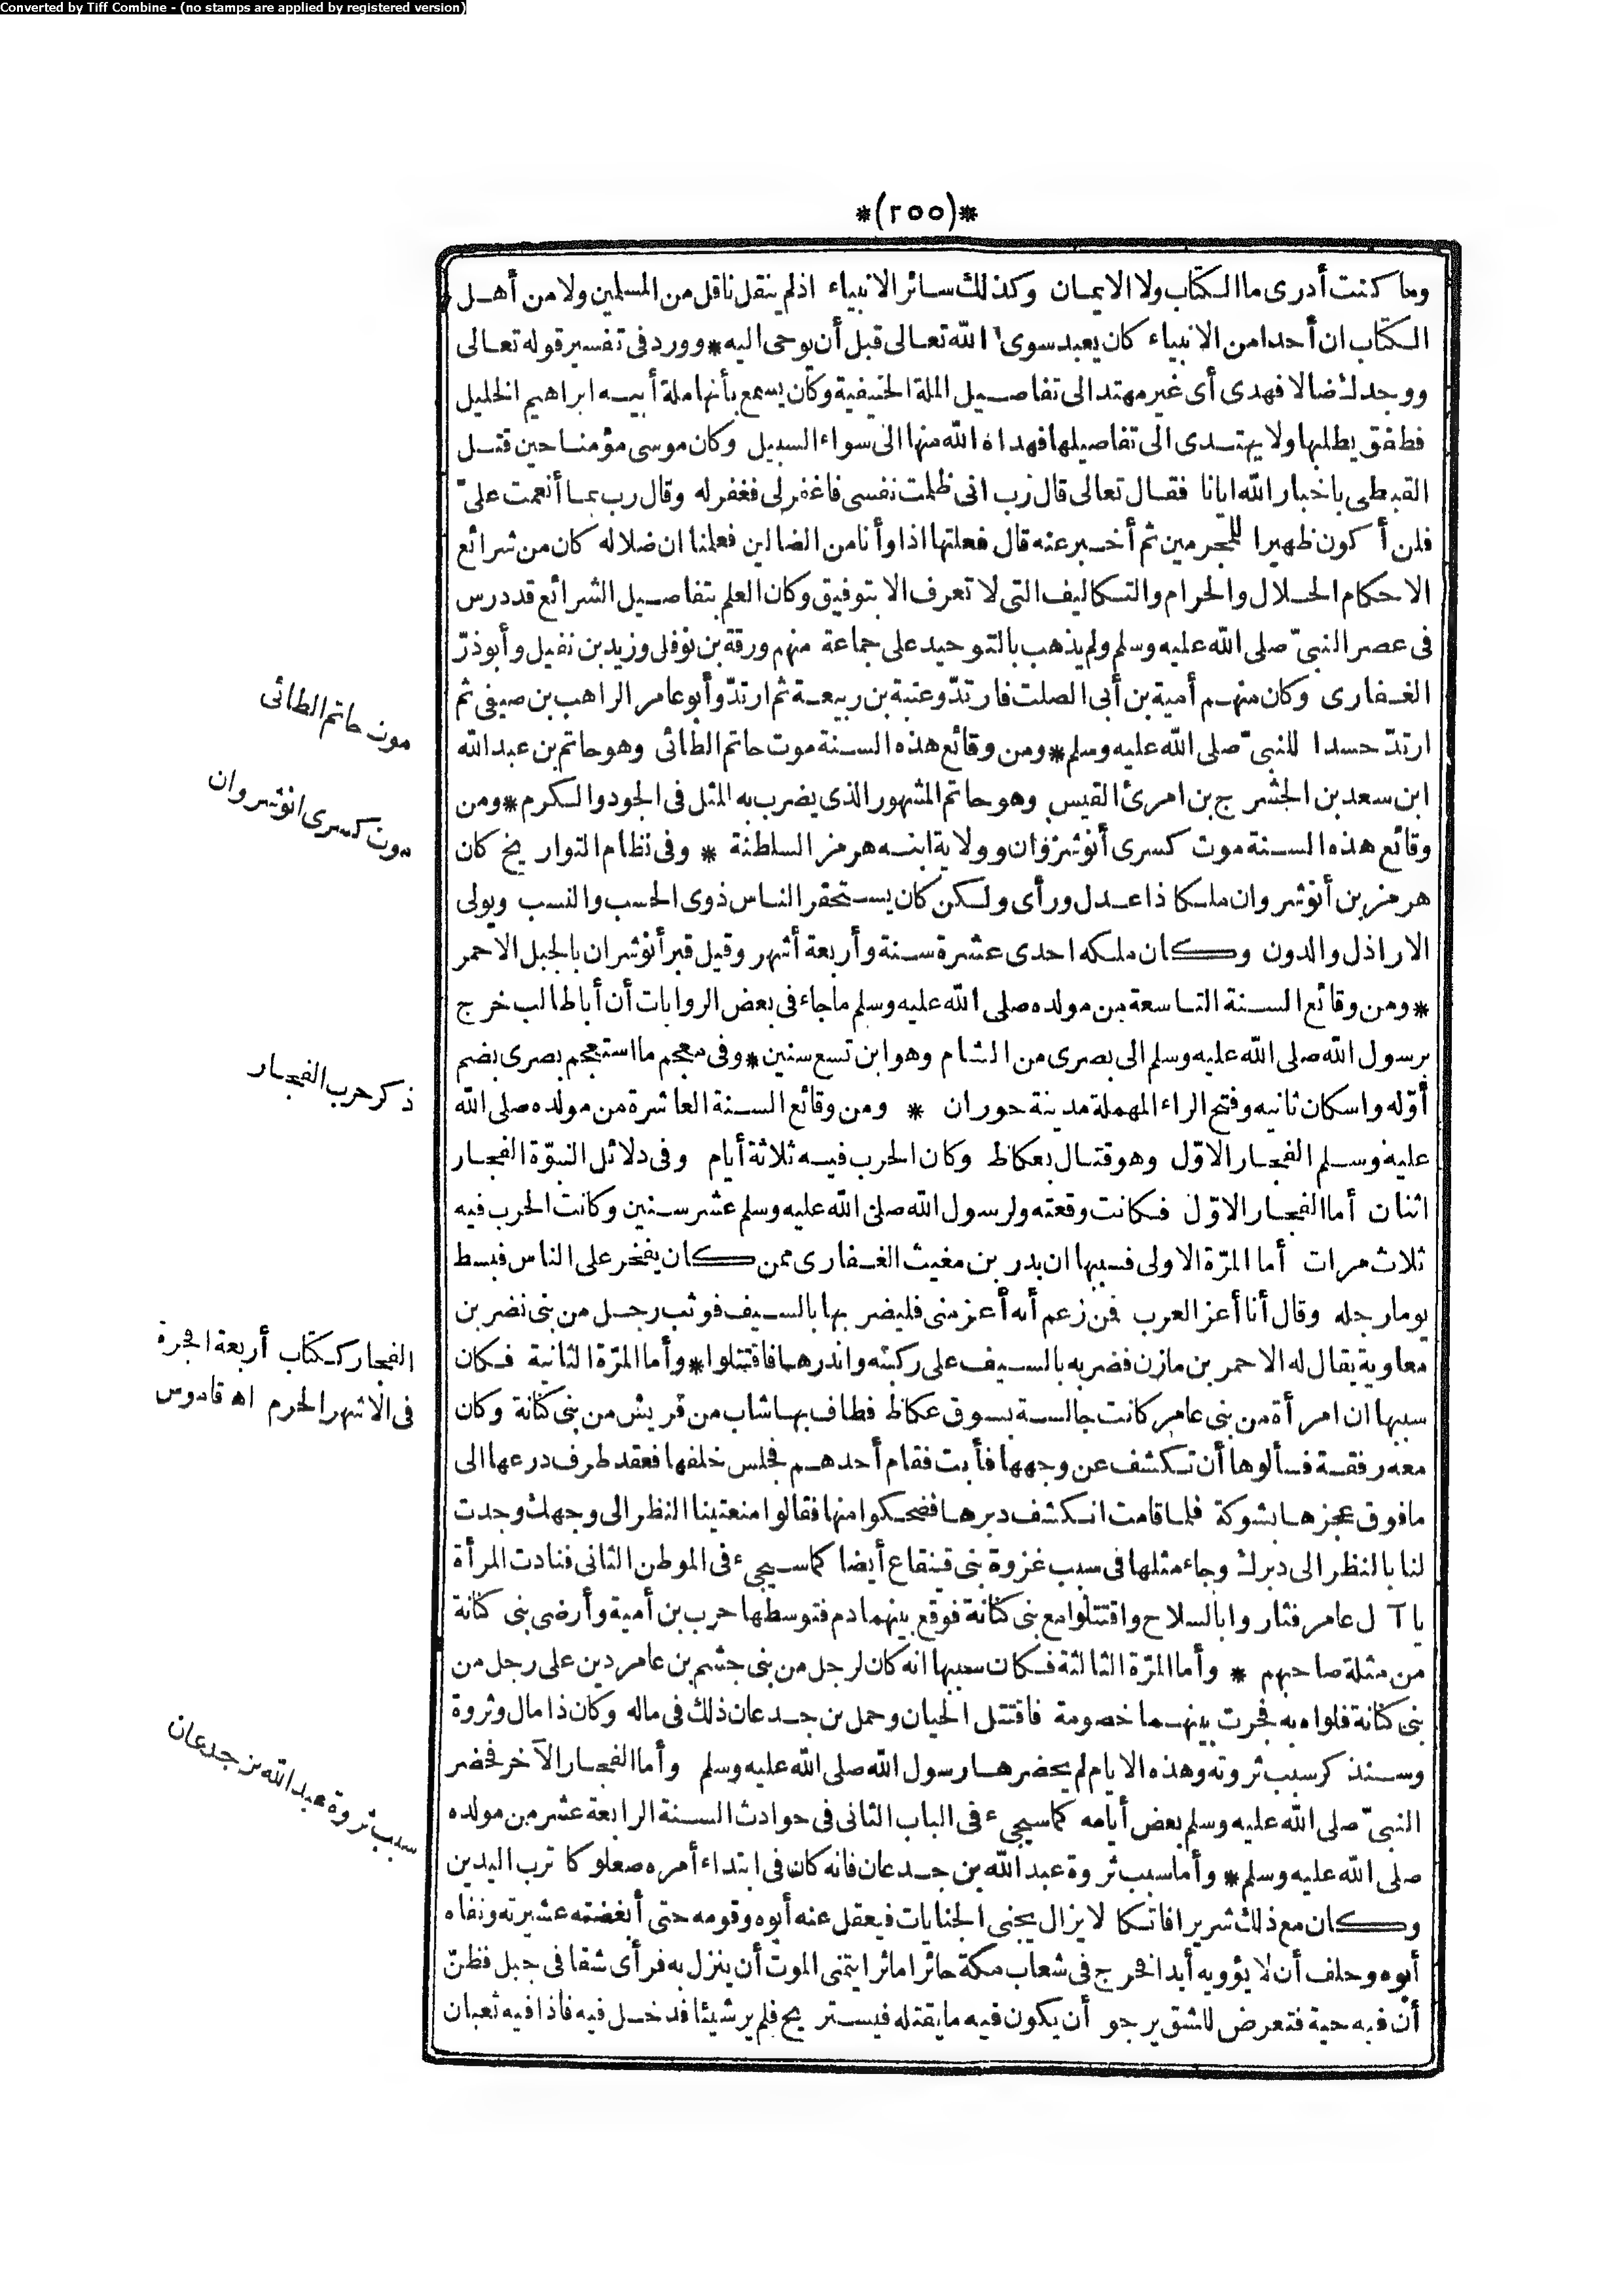 Converted by Tiff Combine - (no stamps are applied by registered version)
*(٢٥٥)*
وما كنت أدرى ما الكتاب ولا الايمان وكذلك سائر الانبياء اذ لم ينقل ناقل من المسلمين ولا من أهل
الكتاب ان أحدا من الانبياء كان يعبد سوى الله تعالى قبل أن يوحى اليه * وورد فى تفسير قوله تعالى
ووجدك ضالا فهدى أى غير مهتد الى تفاصيل الملة الحنيفية وكان يسمع بأنها ملة أبيه ابراهيم الخليل
فطفق يطلبها ولا يهتدى الى تفاصيلها فهداه الله منها الى سواء السبيل وكان موسى مؤمنا حين قتل
القبطى باخبار الله ايانا فقال تعالى قال رب انى ظلمت نفسى فاغفر لى فغفر له وقال رب بما أنعمت علىّ
فلن أكون ظهيرا للمجرمين ثم أخبر عنه قال فعلتها اذا وأنا من الضالين فعلمنا ان ضلاله كان من شرائع
الاحكام الحلال والحرام والتكاليف التى لا تعرف الا بتوفيق وكان العلم بتفاصيل الشرائع قد درس
فى عصر النبىّ صلى الله عليه وسلم ولم يذهب بالتوحيد على جماعة منهم ورقة بن نوفل وزيد بن نفيل وأبو ذرّ
الغفارى وكان منهم أمية بن أبى الصلت فارتدّ وعتبة بن ربيعة ثم ارتدّ وأبو عامر الراهب بن صيفى ثم
ارتدّ حسدا للنبىّ صلى الله عليه وسلم * ومن وقائع هذه السنة موت حاتم الطائى وهو حاتم بن عبد الله
ابن سعد بن الحشرج بن امرئ القيس وهو حاتم المشهور الذى يضرب به المثل فى الجود والكرم * ومن
وقائع هذه السنة موت كسرى أنوشروان وولاية ابنه هرمز السلطنة * وفى نظام التواريخ كان
هرمز بن أنوشروان ملكا ذا عدل ورأى ولكن كان يستحقر الناس ذوى الحسب والنسب ويولى
الاراذل والدون وكان ملكه احدى عشرة سنة وأربعة أشهر وقيل قبر أنوشران بالجبل الاحمر
* ومن وقائع السنة التاسعة من مولده صلى الله عليه وسلم ما جاء فى بعض الروايات أن أبا طالب خرج
برسول الله صلى الله عليه وسلم الى بصرى من الشام وهو ابن تسع سنين * وفى معجم ما استعجم بصرى بضم
أوّله واسكان ثانيه وفتح الراء المهملة مدينة حوران * ومن وقائع السنة العاشرة من مولده صلى الله
عليه وسلم الفجار الاوّل وهو قتال بعكاظ وكان الحرب فيه ثلاثة أيام وفى دلائل النبوّة الفجار
اثنان أما الفجار الاوّل فكانت وقعته ولرسول الله صلى الله عليه وسلم عشر سنين وكانت الحرب فيه
ثلاث مرات أما المرّة الاولى فسببها ان بدر بن مغيث الغفارى ممن كان يفخر على الناس فبسط
يوما رجله وقال أنا أعز العرب فمن زعم أنه أعز منى فليضربها بالسيف فوثب رجل من بنى نضر بن
معاوية يقال له الاحمر بن مازن فضربه بالسيف على ركبته واندرهما فاقتتلوا * وأما المرّة الثانية فكان
سببها ان امرأة من بنى عامر كانت جالسة بسوق عكاظ فطاف بها شاب من قريش من بنى كنانة وكان
معه رفقة فسألوها أن تكشف عن وجهها فأبت فقام أحدهم فجلس خلفها فعقد طرف درعها الى
ما فوق عجزها بشوكة فلما قامت انكشف دبرها فضحكوا منها فقالوا منعتينا النظر الى وجهك وجدت
لنا بالنظر الى دبرك وجاء مثلها فى سبب غزوة بنى قينقاع أيضا كما سيجىء فى الموطن الثانى فنادت المرأة
يا آل عامر فثاروا بالسلاح واقتتلوا مع بنى كنانة فوقع بينهما دم فتوسطها حرب بن أمية وأرضى بنى كنانة
من مثلة صاحبهم * وأما المرّة الثالثة فكان سببها انه كان لرجل من بنى جشم بن عامر دين على رجل من
بنى كنانة فلواه به فجرت بينهما خصومة فاقتتل الحيان وحمل بن جدعان ذلك فى ماله وكان ذا مال وثروة
وسنذكر سبب ثروته وهذه الايام لم يحضرها رسول الله صلى الله عليه وسلم وأما الفجار الآخر فحضر
النبىّ صلى الله عليه وسلم بعض أيامه كما سيجىء فى الباب الثانى فى حوادث السنة الرابعة عشر من مولده
صلى الله عليه وسلم * وأما سبب ثروة عبد الله بن جدعان فانه كان فى ابتداء أمره صعلوكا ترب اليدين
وكان مع ذلك شريرا فاتكا لا يزال يجنى الجنايات فيعقل عنه أبوه وقومه حتى أبغضته عشيرته ونفاه
أبوه وحلف أن لا يؤويه أبدا فخرج فى شعاب مكة حائرا مائرا يتمنى الموت أن ينزل به فرأى شقا فى جبل فظنّ
أنّ فيه حية فتعرض للشق يرجو أن يكون فيه ما يقتله فيستريح فلم ير شيئا فدخل فيه فاذا فيه ثعبان
موت حاتم الطائى
موت كسرى انوشروان
ذكر حرب الفجار
الفجار ككتاب أربعة افجرة
فى الاشهر الحرم اه قاموس
سبب ثروة عبد الله بن جدعان